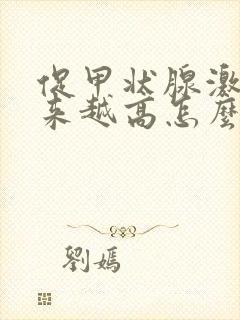 促甲状腺激
来越高怎麼
劉嫣